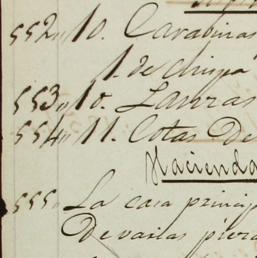 552,, 10. Carabinas
1. de chispa
553,, 10. Lanzas
554,, 11. Cotas De
Hacienda
555,, La casa princip
De varias pieza